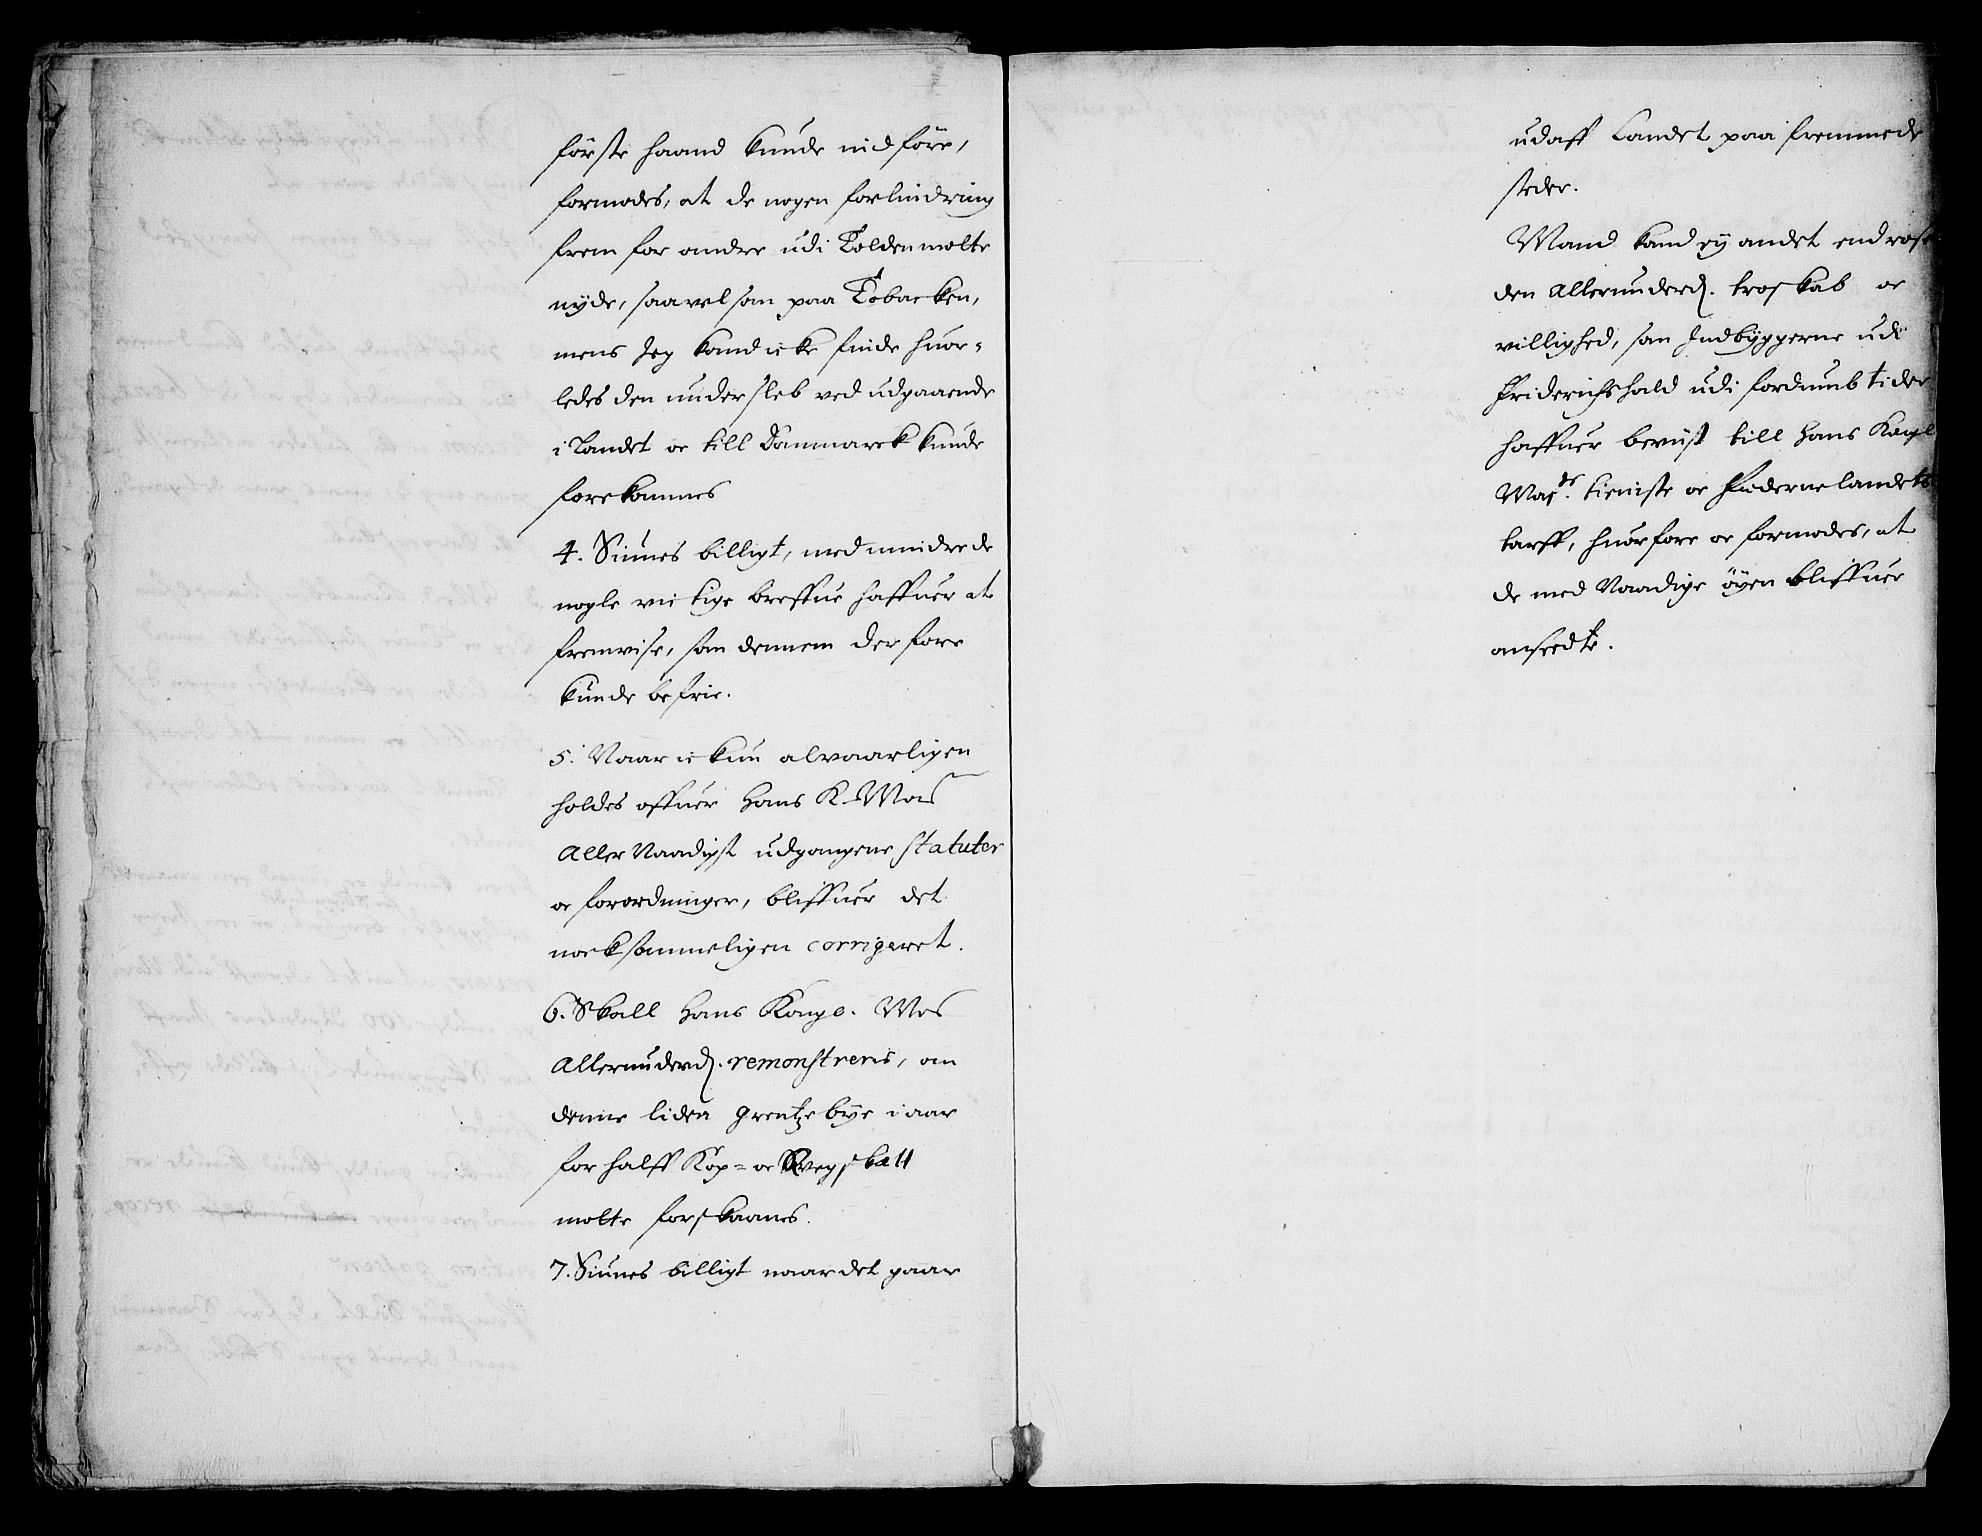 förste haand kunde indföre,
formodes, at de nogen forlindring
frem for andre udi Tolden motte
nyde, saavelsom paa Tobacken,
mens Jeg kand icke finde huor=
ledes den undersleb ved udgaaende
i Landet oc till Danmarck kunde
forekommes
4. Siunes billigt, med mindre de
nogle victige breffue haffuer at
fremvise, som dennem derfore
kunde befrie.
5. Naar ickun alvaarligen
holdes offuer Hans K. Mas
Aller Naadigst udgangene statuter
oc forordninger, bliffuer det
nocksommeligen corrigeret.
6. Skall Hans Kongl. Mas
Allerunderd. remonstreris, om
denne liden grentze bye i aar
for halff Kop= oc Qvegskatt
motte forskaanes.
7. Siunes billigt naar det gaar
udaff Landet paa fremmede
steder.
Mand kand ey andet end rose
den Allerunderd. troskab oc
villighed, som Indbyggerne udi
Friderichshald udi fordumb tider
haffuer beviist till Hans Kongl
Mas.ts tieniste oc Fæderne landets
tarff, huorfore oc formodes, at
de med Naadige öyen bliffuer
anseedte.